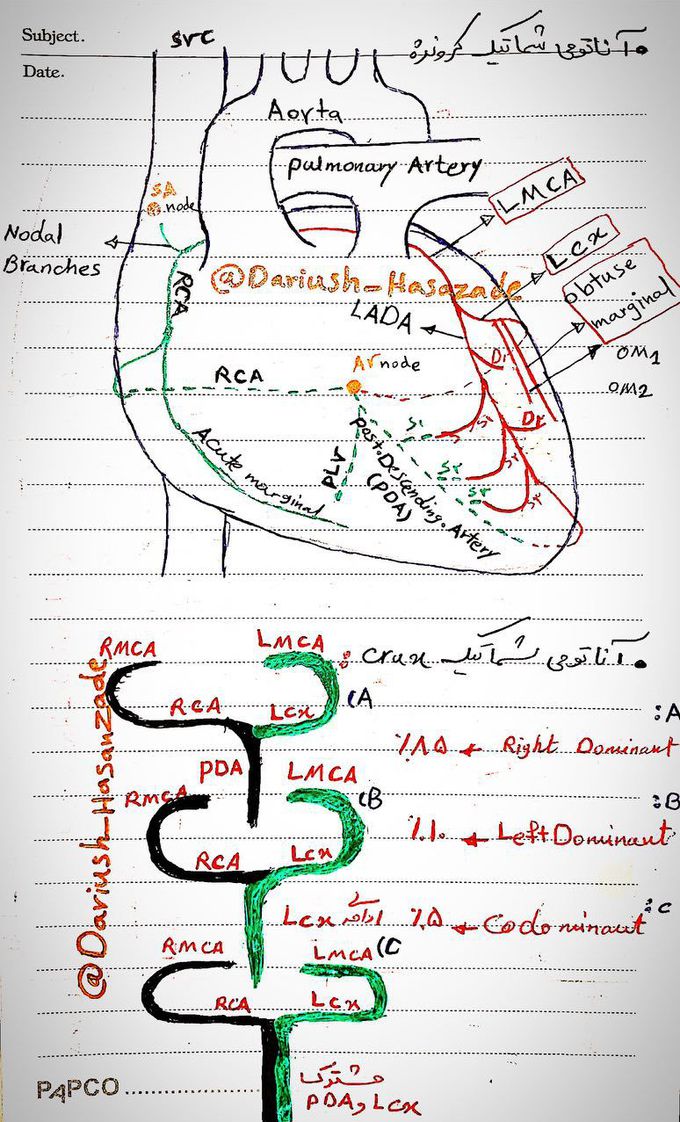 Subject.
SVC
• آناتومی شماتیک کرونری
Date.
Aorta
Pulmonary Artery
SA
node
LMCA
Nodal
Branches
Lcx
@Dariush_Hasazade
obtuse
marginal
RCA
LADA
OM1
AV node
D1
RCA
OM2
D2
S1
S1
Acute marginal
PLV
post.Descending.Artery
(PDA)
S2
S2
S3
S3
• آناتومی شماتیک crux :
RMCA
LMCA
(A
RCA
Lcx
A:
٪۸۵ ← Right Dominant
PDA
LMCA
RMCA
(B
B:
٪۱۰ ← Left Dominant
RCA
Lcx
@Dariush_Hasanzade
ادامه ی Lcx
C:
٪۵ ← Codominant
RMCA
LMCA
(C
RCA
Lcx
مشترک
PDA و Lcx
PAPCO